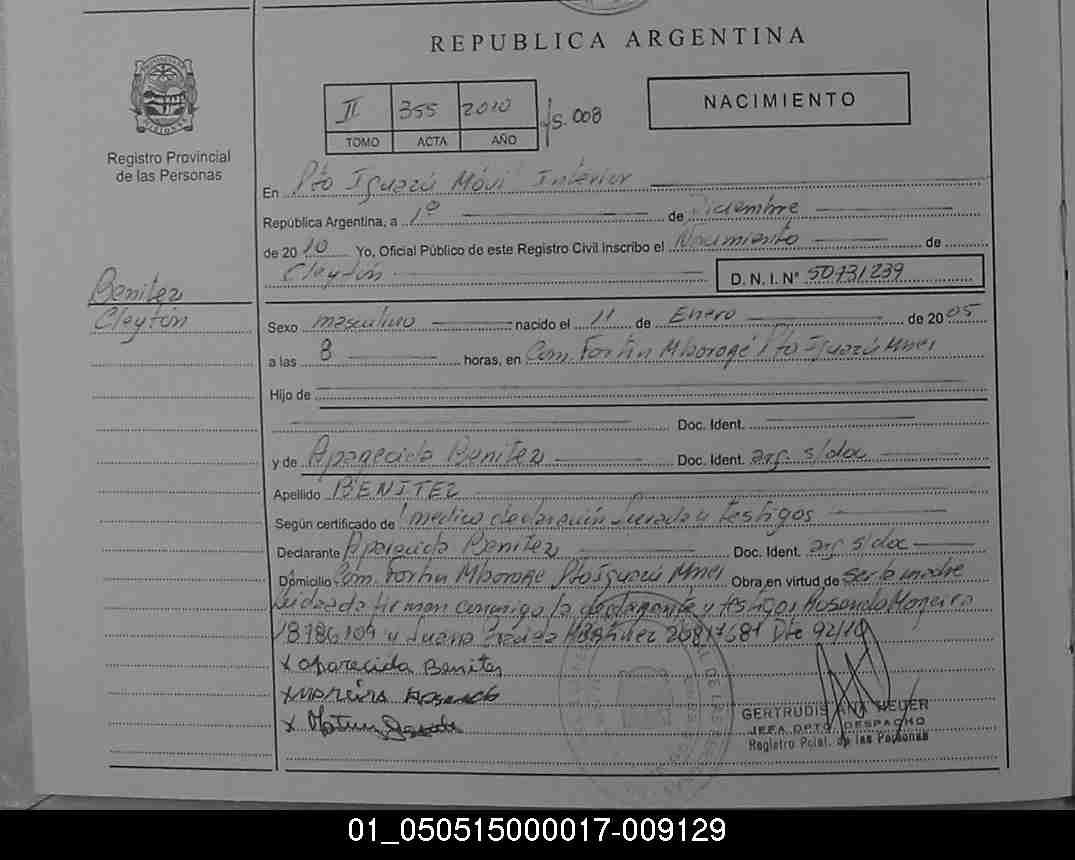 REPUBLICA ARGENTINA
II 355 2010 fs. 008
TOMO ACTA AÑO
NACIMIENTO
Registro Provincial
de las Personas
En Pto Iguazú Móvil Interior
República Argentina, a 1º de Diciembre
de 2010 Yo, Oficial Público de este Registro Civil Inscribo el Nacimiento de
Cleytón D.N.I.Nº 50731239
Benitez
Cleytón
Sexo masculino nacido el 11 de Enero de 2005
a las 8 horas, en Com. Fortín Mbororé Pto Iguazú Mnes
Hijo de
Doc. Ident.
y de Aparecida Benitez Doc. Ident. arg. s/doc
Apellido BENITEZ
Según certificado de médico declaración Jurada y testigos
Declarante Aparecida Benitez Doc. Ident. arg s/doc
Domicilio Com. Fortín Mbororé Pto Iguazú Mnes Obra en virtud de ser la madre
firman conmigo la declarante y testigos Rosendo Moreira
18786104 y Juana Martinez 26817681 Dto 92/10
x aparecida Benitez
x moreira Rosendo
x
GERTRUDIS ANA HEUER
JEFA DPTO. DESPACHO
Registro Pcial. de las Personas
01_050515000017-009129